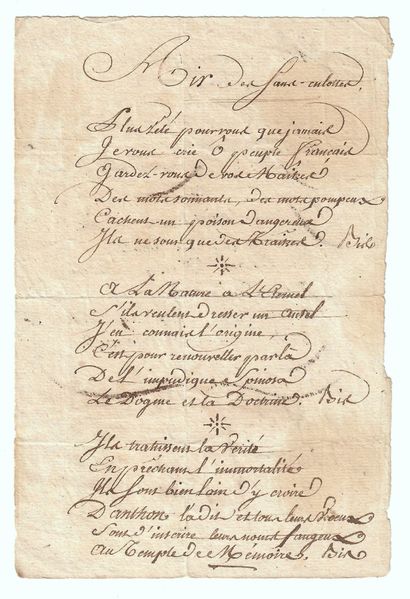 Air des Sans-culottes.
Plus zélé pour vous que jamais
Je vous crie ô peuple Français
Gardez-vous de vos Maîtres
Des mots ronnants, des mots pompeux
Cachent un poison dangereux
Ils ne sont que des Traîtres. Bis
A La Nature à L'Eternel
S'ils veulent dresser un Autel
J'en connais l'origine,
C'est pour renouveller par là
De l'impudique Spinosa
Le Dogme et la Doctrine. Bis
Ils trahissent la Vérité
En prêchant l'immortalité
Ils sont bien loin d'y croire
Danthon l'a dit et tous leurs Voeux
Sont d'inscrire leurs noms fangeux
Au Temple de Mémoire. Bis